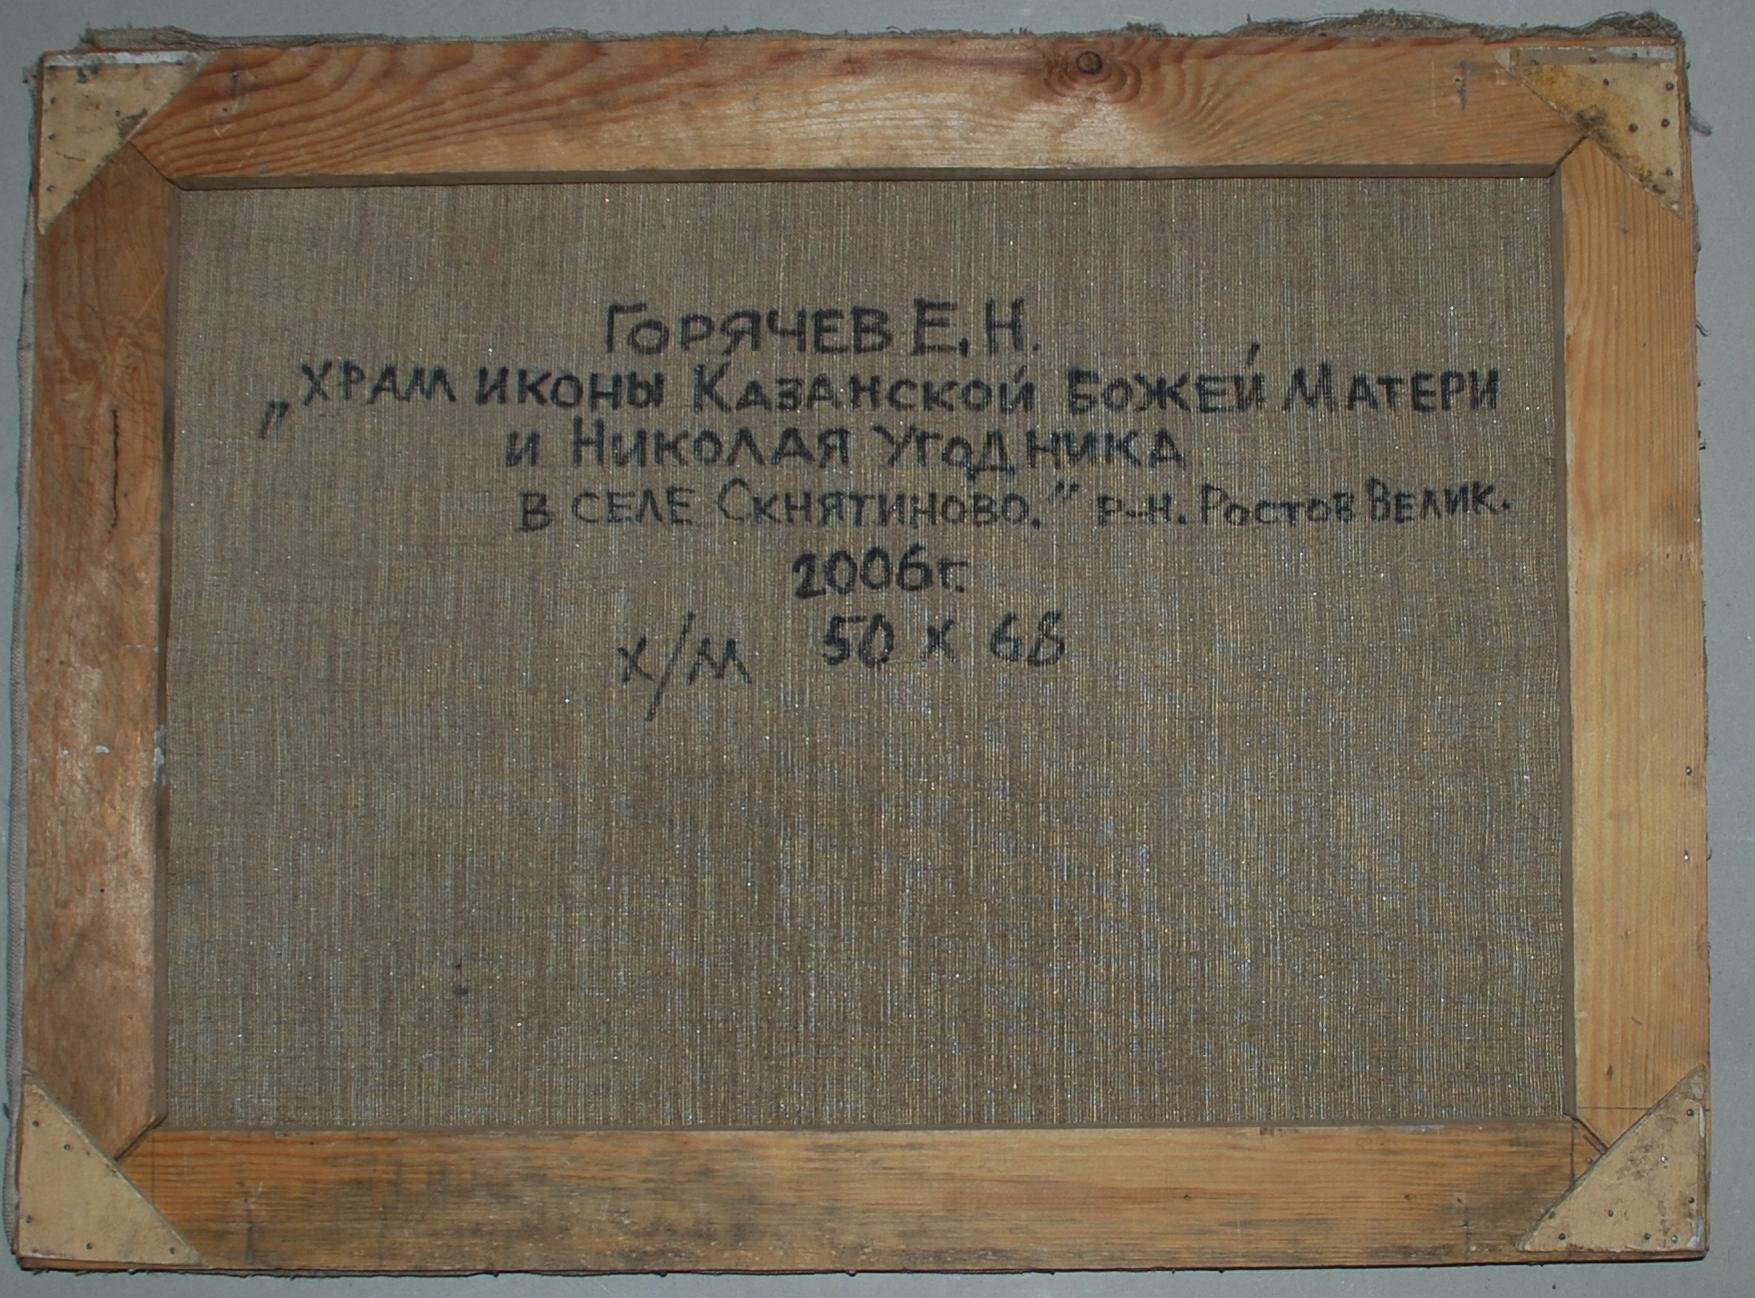 Горячев Е.Н.
„Храм иконы Казанской Божей Матери
и Николая Угодника
в селе Скнятиново." р-н. Ростов Велик.
2006г.
х/м 50 х 68